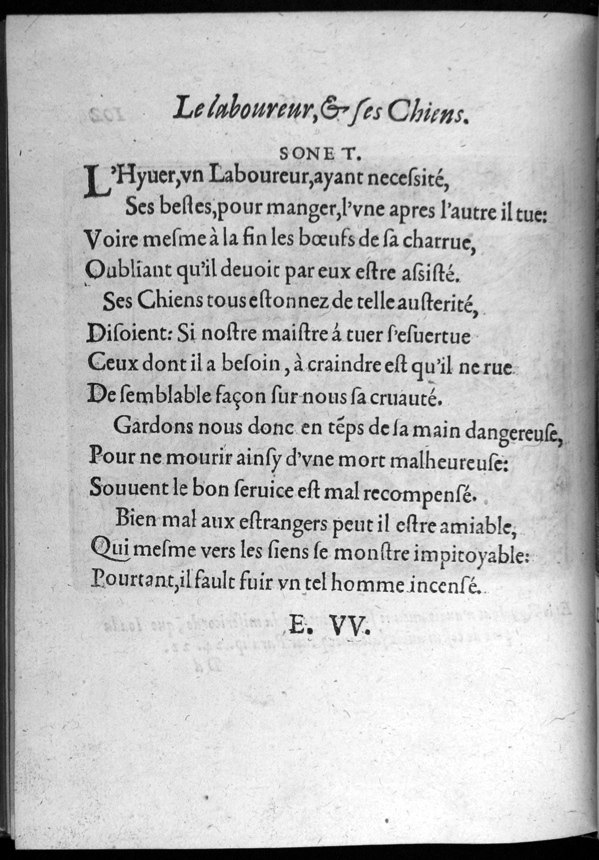 Le laboureur, & ſes Chiens.
SONET.
L'Hyuer, vn Laboureur, ayant neceſsité,
Ses beſtes, pour manger, l'vne apres l'autre il tue:
Voire meſme à la fin les bœufs de ſa charrue,
Oubliant qu'il deuoit par eux eſtre aſsiſté.
Ses Chiens tous eſtonnez de telle auſterité,
Diſoient: Si noſtre maiſtre á tuer ſ'eſuertue
Ceux dont il a beſoin, à craindre eſt qu'il ne rue
De ſemblable façon ſur nous ſa cruauté.
Gardons nous donc en tẽps de ſa main dangereuſe,
Pour ne mourir ainſy d'vne mort malheureuſe:
Souuent le bon ſeruice eſt mal recompenſé.
Bien mal aux eſtrangers peut il eſtre amiable,
Qui meſme vers les ſiens ſe monſtre impitoyable:
Pourtant, il fault fuir vn tel homme incenſé.
E. VV.